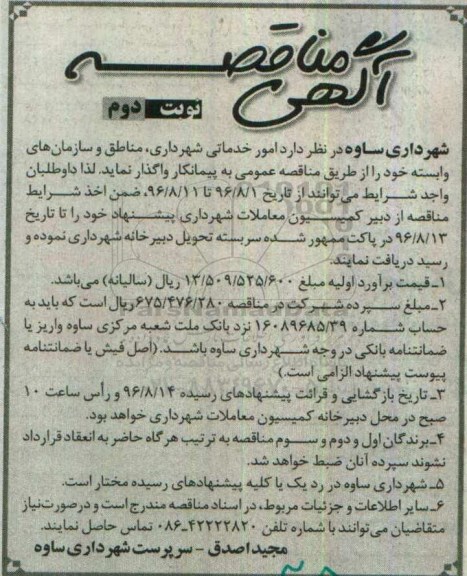 آگهی مناقصه
نوبت دوم
شهرداری ساوه در نظر دارد امور خدماتی شهرداری، مناطق و سازمان‌های
وابسته خود را از طریق مناقصه عمومی به پیمانکار واگذار نماید. لذا داوطلبان
واجد شرایط می‌توانند از تاریخ ۹۶/۸/۱ تا ۹۶/۸/۱۱، ضمن اخذ شرایط
مناقصه از دبیر کمیسیون معاملات شهرداری پیشنهاد خود را تا تاریخ
۹۶/۸/۱۳ در پاکت ممهور شده سربسته تحویل دبیرخانه شهرداری نموده و
رسید دریافت نمایند.
۱ـ قیمت برآورد اولیه مبلغ ۱۳/۵۰۹/۵۲۵/۶۰۰ ریال (سالیانه) می‌باشد.
۲ـ مبلغ سپرده شرکت در مناقصه ۶۷۵/۴۷۶/۲۸۰ ریال است که باید به
حساب شماره ۱۶۰۸۹۶۸۵/۳۹ نزد بانک ملت شعبه مرکزی ساوه واریز یا
ضمانتنامه بانکی در وجه شهرداری ساوه باشد. (اصل فیش یا ضمانتنامه
پیوست پیشنهاد الزامی است.)
۳ـ تاریخ بازگشایی و قرائت پیشنهادهای رسیده ۹۶/۸/۱۴ و رأس ساعت ۱۰
صبح در محل دبیرخانه کمیسیون معاملات شهرداری خواهد بود.
۴ـ برندگان اول و دوم و سوم مناقصه به ترتیب هرگاه حاضر به انعقاد قرارداد
نشوند سپرده آنان ضبط خواهد شد.
۵ـ شهرداری ساوه در رد یک یا کلیه پیشنهادهای رسیده مختار است.
۶ـ سایر اطلاعات و جزئیات مربوط، در اسناد مناقصه مندرج است و در صورت نیاز
متقاضیان می‌توانند با شماره تلفن ۴۲۲۲۲۸۲۰ـ۰۸۶ تماس حاصل نمایند.
مجید اصدق - سرپرست شهرداری ساوه